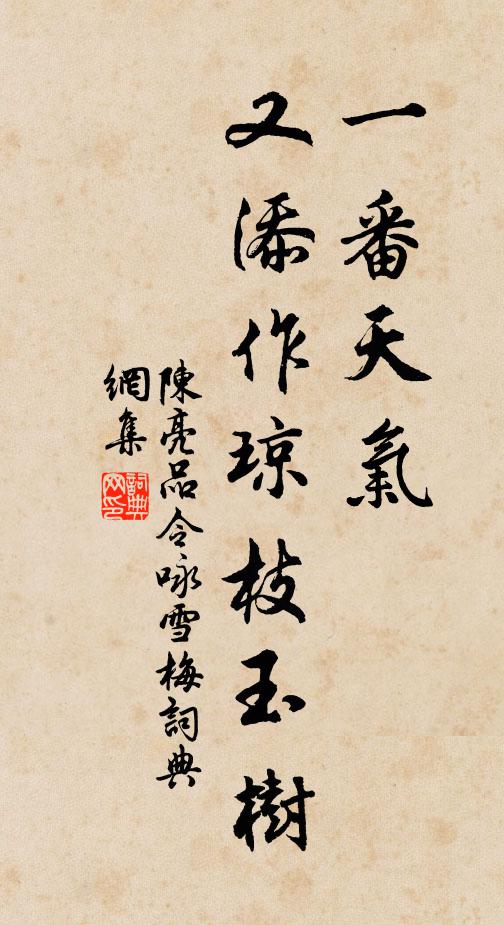 一番天氣
又添作瓊枝玉樹
陳亮品令咏雪梅詞典
網集
詞典
网印